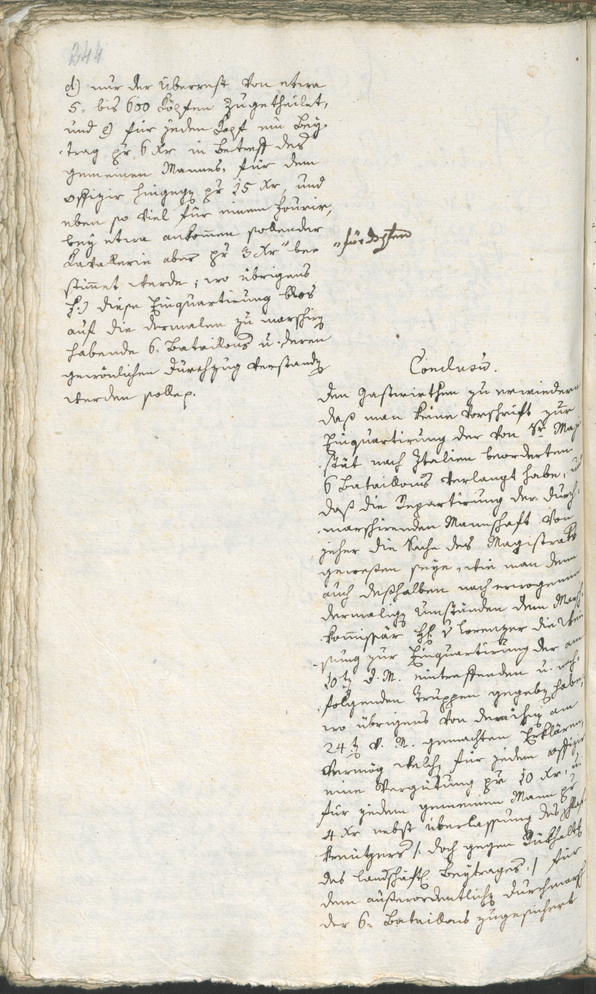 244
d) nur der Überrest von etwa
5. bis 600 Köpfen zugetheilet,
und e) für jeden Kopf ein Bey-
trag pr 6 Xr in Betreff des
gemeinen Mannes, für dem
Offizir hingegen pr 15 Xr, und
eben so viel für einen Fourir,
bey etwa ankommen sollender
Kavallerie aber pr 3 Xr be
stimmet werde; wo übrigens
f.) diese Einquartirung blos
auf die dermalen zu marschiren
habende 6. Bataillons u. deren
gewönlichen Durchzug verstanden
werden solle.
Conclusum.
Den Gastwirthen zu erwiedern
daß man keine Vorschrift zur
Einquartirung der von Sr Maje
stät nach Italien beorderten
6 Bataillons verlangt habe, und
daß die Repartirung der durch-
marschirenden Mannschaft von
jeher die Sache des Magistrats
gewesen seye, wie man denn
auch deßhalben nach erwogenen
dermaligen Umständen dem Marsch
kommissär H. v Lorenzer die Wei
sung zur Einquartirung der am
10ten d. M. eintreffenden u. nach
folgenden Truppen gegeben habe,
wo übrigens von dem ihm am
24ten v. M. gemachten Erklären,
vermög welch für jeden Offizir
eine Vergütung pr 10 Xr,
für jeden gemeinen Mann pr
4 Xr nebst Überlassung des
doch gegen Rükhalt
des landschäftl. Beytrages:/ für
den außerordentlichen Durchmarsch
der 6. Bataillons zugesichert